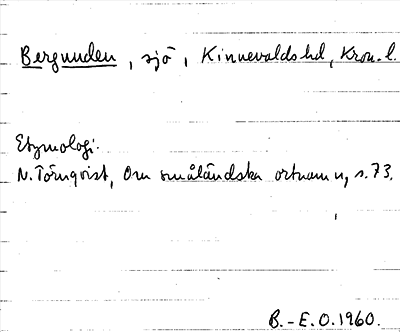 Bergunden, sjö, Kinnevalds hd, Kron. l.
Etymologi.
N. Törnqvist, Om småländska ortnamn, s. 73.
B.-E. O. 1960.